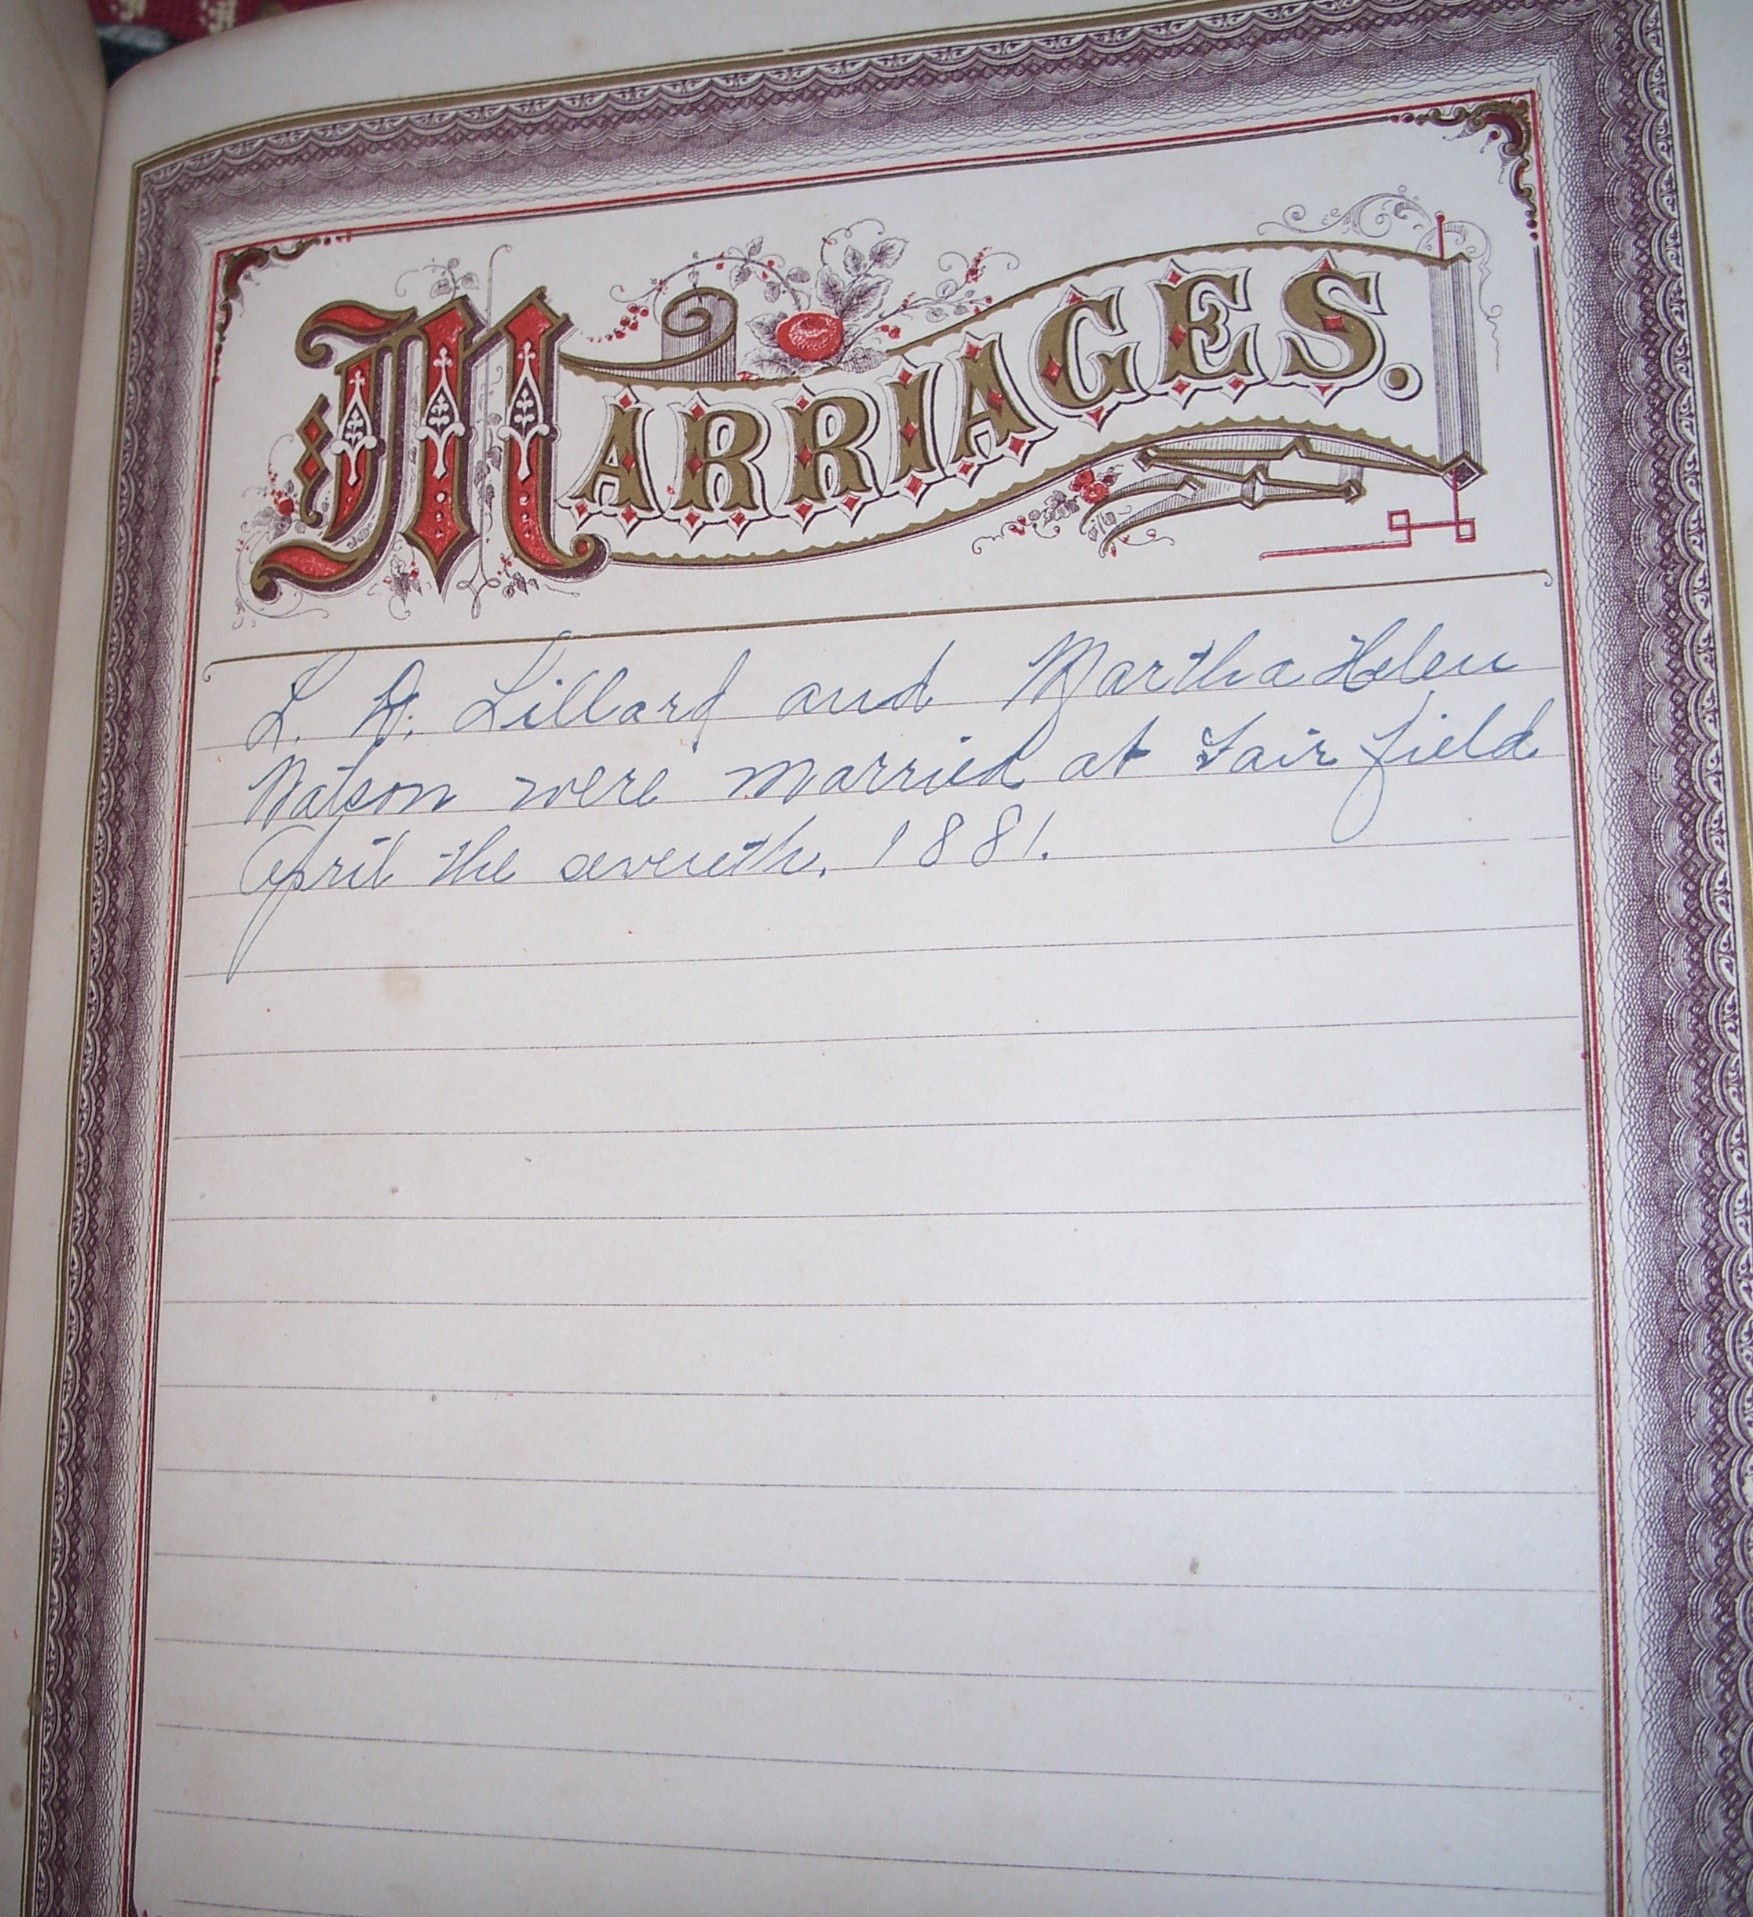 MARRIAGES.
L. D. Lillard and Martha Helen
Watson were married at Fairfield
April the seventh, 1881.